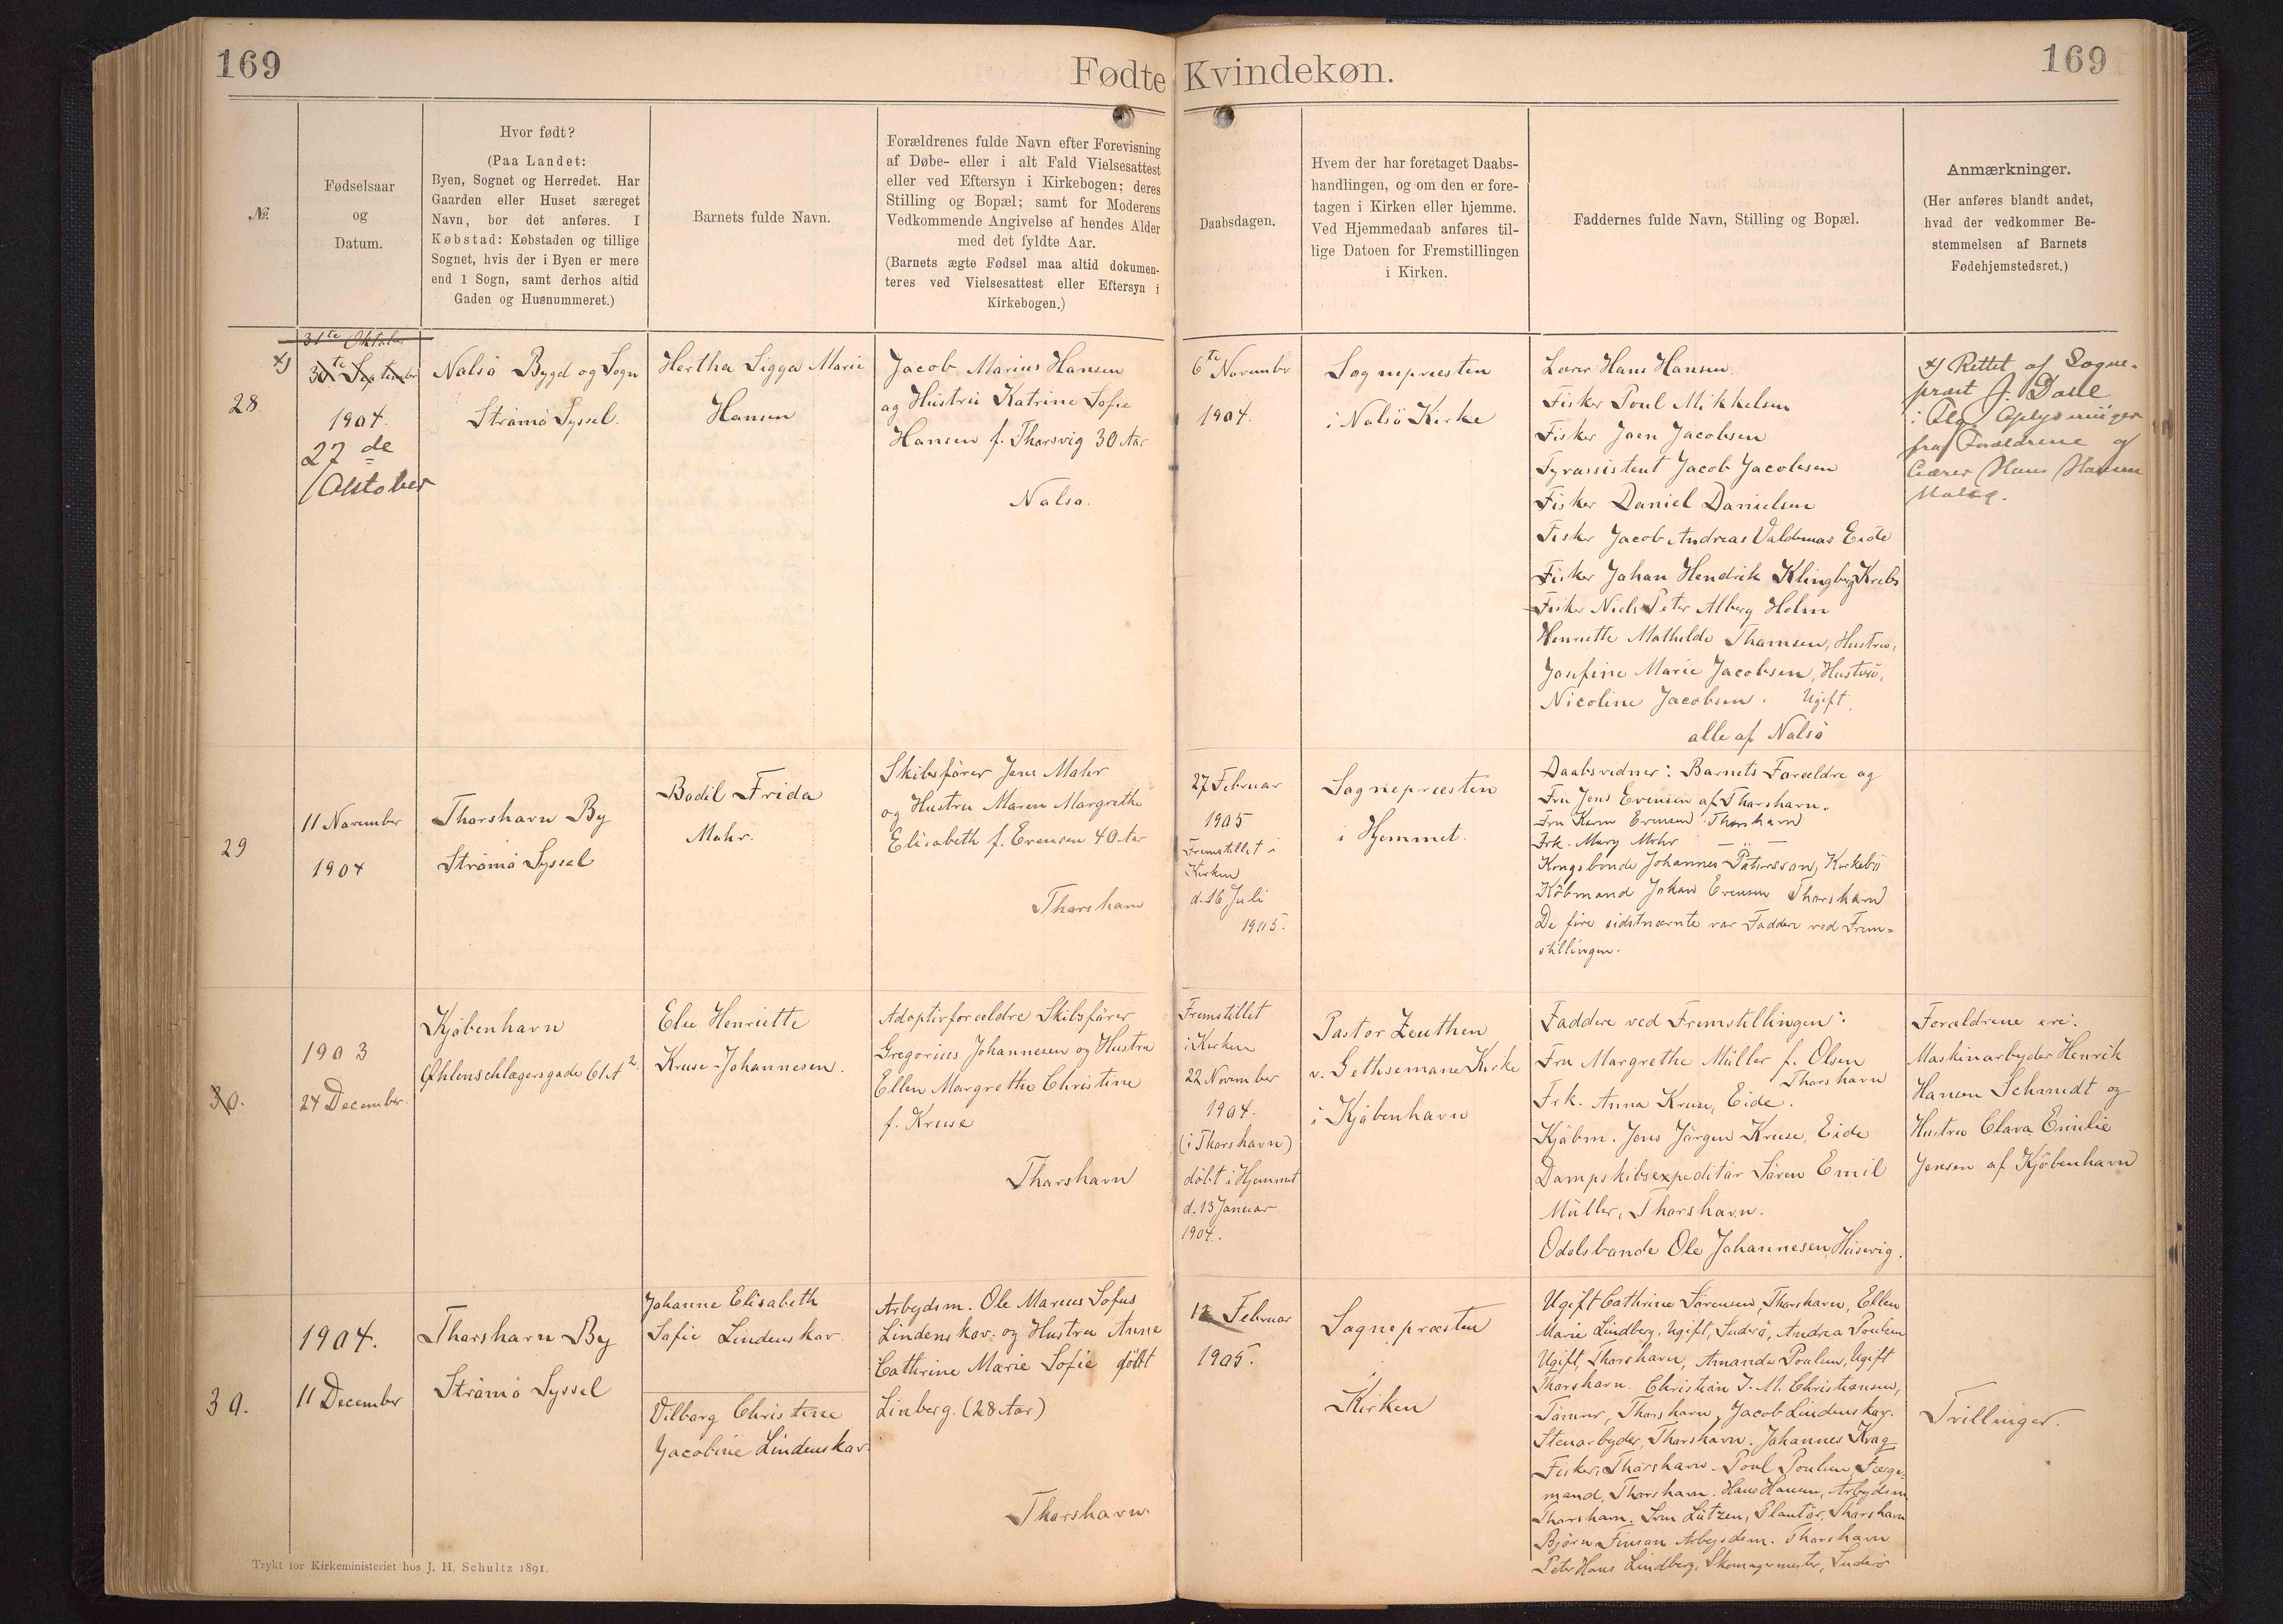 169
Fødte Kvindekøn.
169
№.
Fødselsaar
og
Datum.
Hvor født?
(Paa Landet:
Byen, Sognet og Herredet. Har
Gaarden eller Huset særeget
Navn, bor det anføres. I
Købstad: Købstaden og tillige
Sognet, hvis der i Byen er mere
end 1 Sogn, samt derhos altid
Gaden og Husnummeret.)
Barnets fulde Navn.
Forældrenes fulde Navn efter Forevisning
af Døbe- eller i alt Fald Vielsesattest
eller ved Eftersyn i Kirkebogen; deres
Stilling og Bopæl; samt for Moderens
Vedkommende Angivelse af hendes Alder
med det fyldte Aar.
(Barnets ægte Fødsel maa altid dokumen-
teres ved Vielsesattest eller Eftersyn i
Kirkebogen.)
Daabsdagen.
Hvem der har foretaget Daabs-
handlingen, og om den er fore-
tagen i Kirken eller hjemme.
Ved Hjemmedaab anføres til-
lige Datoen for Fremstillingen
i Kirken.
Faddernes fulde Navn, Stilling og Bopæl.
Anmærkninger.
(Her anføres blandt andet,
hvad der vedkommer Be-
stemmelsen af Barnets
Fødehjemstedsret.)
28
31te Oktober
x) 30te September
1904.
27 de
Oktober
Nalsö Bygd og Sogn
Strömö Syssel.
Hertha Sigga Marie
Hansen
Jacob Marius Hansen
og Hustru Katrine Sofie
Hansen f. Thorsvig 30 Aar
Nalsö.
6te November
1904.
Sognepræsten
i Nalsö Kirke
Lærer Hans Hansen
Fisker Poul Mikkelsen
Fisker Joen Jacobsen
Fyrassistent Jacob Jacobsen
Fisker Daniel Danielsen
Fisker Jacob Andreas Valdemar Eide
Fisker Johan Hendrik Klingberg Krebs
Fisker Niels Peter Alberg Holm
Henriette Mathilde Thomsen, Hustru,
Josefine Marie Jacobsen, Hustru,
Nicoline Jacobsen. Ugift,
alle af Nalsö
x) Rettet af Sogne-
præst J. Dahl
i Flg. Oplysninger
fra Forældrene og
Lærer Hans Hansen
Nalsø.
29
11 November
1904
Thorshavn By
Strömö Syssel
Bodil Frida
Mohr.
Skibsförer Jens Mohr
og Hustru Maren Margrethe
Elisabeth f. Evensen 40 Aar
Thorshavn
27 Februar
1905
Fremstillet i
Kirken
d. 16 Juli
1905.
Sognepræsten
i Hjemmet.
Daabsvidner: Barnets Forældre og
Fru Jens Evensen af Thorshavn.
Fru Karen Evensen Thorshavn
Frk. Mary Mohr — " —
Kongsbonde Johannes Patursson, Kirkebö
Köbmand Johan Evensen Thorshavn
De fire sidstnævnte var Faddere ved Frem-
stillingen.
30.
1903
24 December.
Kjöbenhavn
Øhlenschlægersgade 61 St 2.
Else Henriette
Kruse-Johannesen.
Adoptivforældre Skibsförer
Gregorius Johannesen og Hustru
Ellen Margrethe Christine
f. Kruse
Thorshavn
Fremstillet
i Kirken
22 November
1904.
(i Thorshavn)
döbt i Hjemmet
d. 13 Januar
1904.
Pastor Zeuthen
v. Gethsemane Kirke
i Kjöbenhavn
Faddere ved Fremstillingen:
Fru Margrethe Müller f. Olsen
Thorshavn
Frk. Anna Kruse, Eide.
Kjöbm. Jens Jörgen Kruse, Eide
Dampskibsexpeditör Sören Emil
Müller, Thorshavn.
Odelsbonde Ole Johannesen, Húsevig.
Forældrene ere:
Maskinarbejder Henrik
Hansen Schmidt og
Hustru Clara Emilie
Jensen af Kjöbenhavn
30.
1904.
11 December
Thorshavn By
Strömö Syssel
Johanne Elisabeth
Sofie Lindenskov.
Vilborg Christine
Jacobine Lindenskov
Arbejdsm. Ole Marius Sofus
Lindenskov. og Hustru Anne
Cathrine Marie Sofie födt
Linberg. (28 Aar)
Thorshavn.
12 Februar
1905.
Sognepræsten
i
Kirken
Ugift Cathrine Sörensen, Thorshavn, Ellen
Marie Lindberg, Ugift, Suderö, Andrea Poulsen
Ugift, Thorshavn, Amanda Poulsen, Ugift
Thorshavn. Christian J. M. Christiansen,
Tömrer, Thorshavn, Jacob Lindenskov.
Stenarbejder, Thorshavn. Johannes Krag
Fisker, Thorshavn. Poul Poulsen, Færge-
mand, Thorshavn. Hans Hansen, Arbejdsm
Thorshavn. Sven Lützen, Plantör, Thorshavn
Björn Finsson Arbejdsm. Thorshavn
Peter Hans Lindberg, Skomagermester, Suderö
Tvillinger.
Trykt for Kirkeministeriet hos J. H. Schultz 1891.